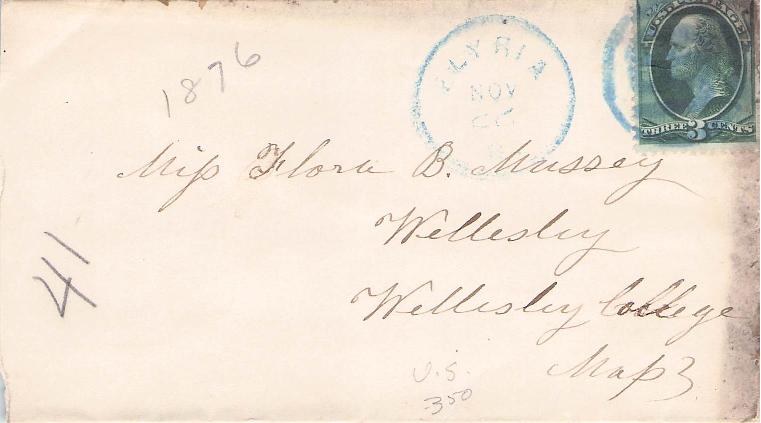 1876
ELYRIA
NOV
U.S. POSTAGE
THREE 3 CENTS
Miss Flora B. Mussey
Wellesley
Wellesley College
Mass
41
U.S.
350